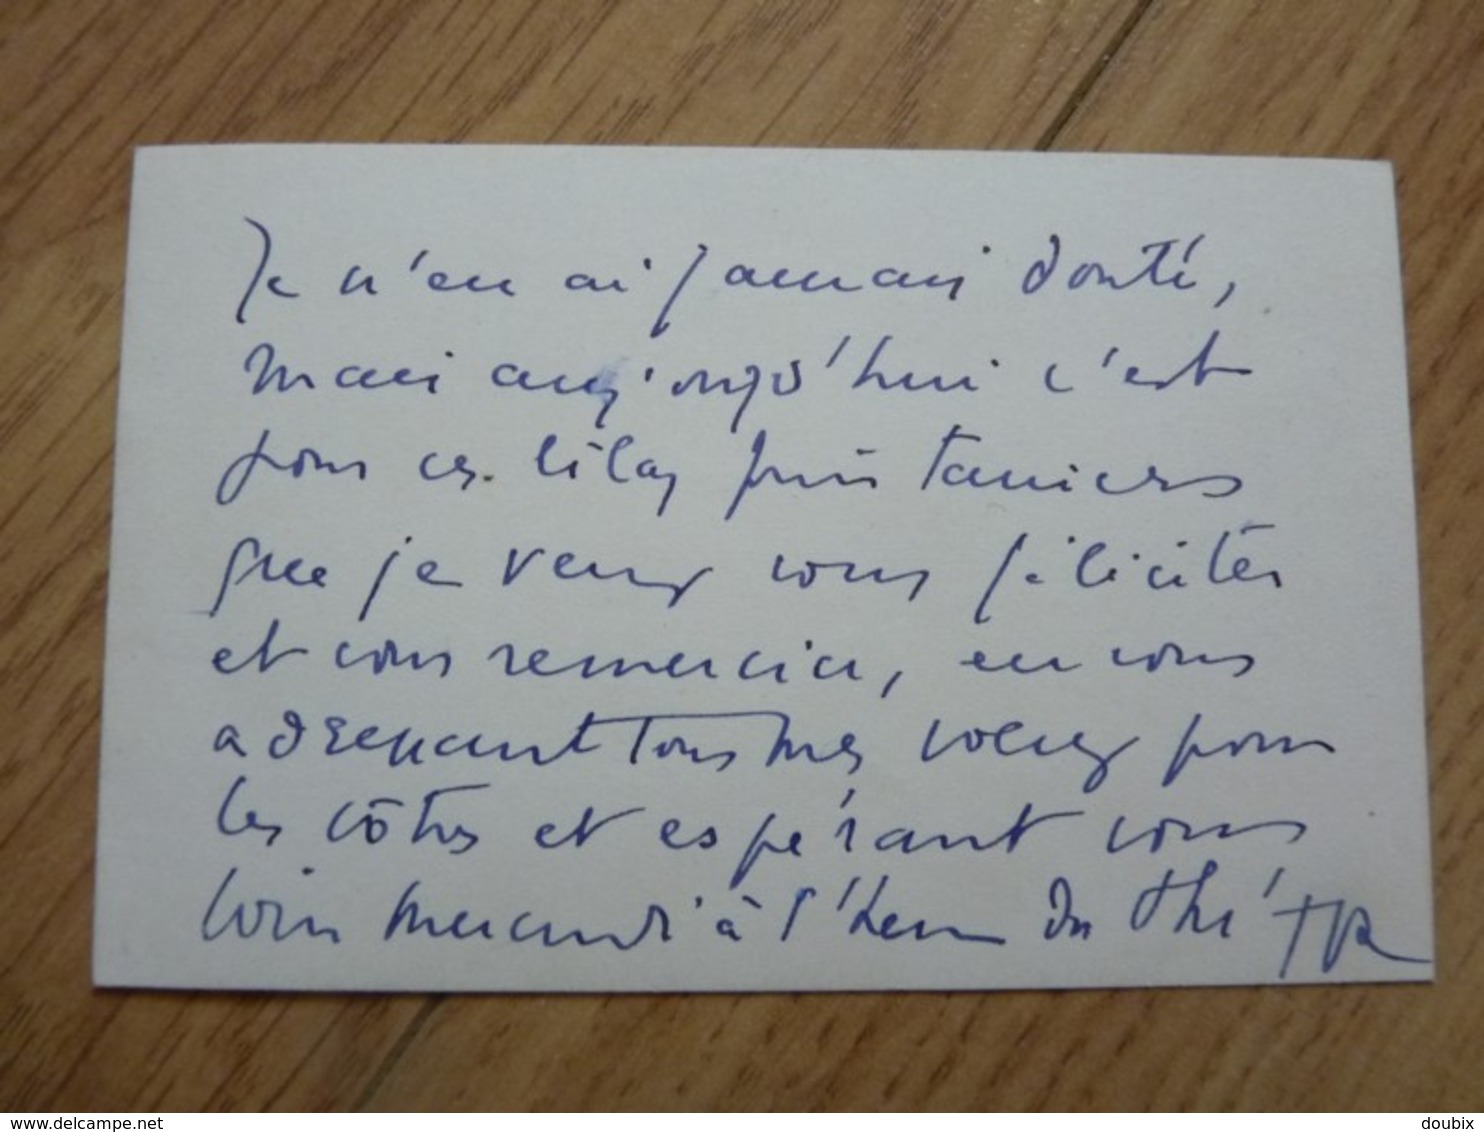 Je n'en ai jamais douté,
mais aujourd'hui c'est
pour ces lilas printaniers
que je veux vous féliciter
et vous remercier, en vous
adressant tous mes voeux pour
les côtes et espérant vous
voir mercredi à l'heure du thé
delcampe.net
doubix